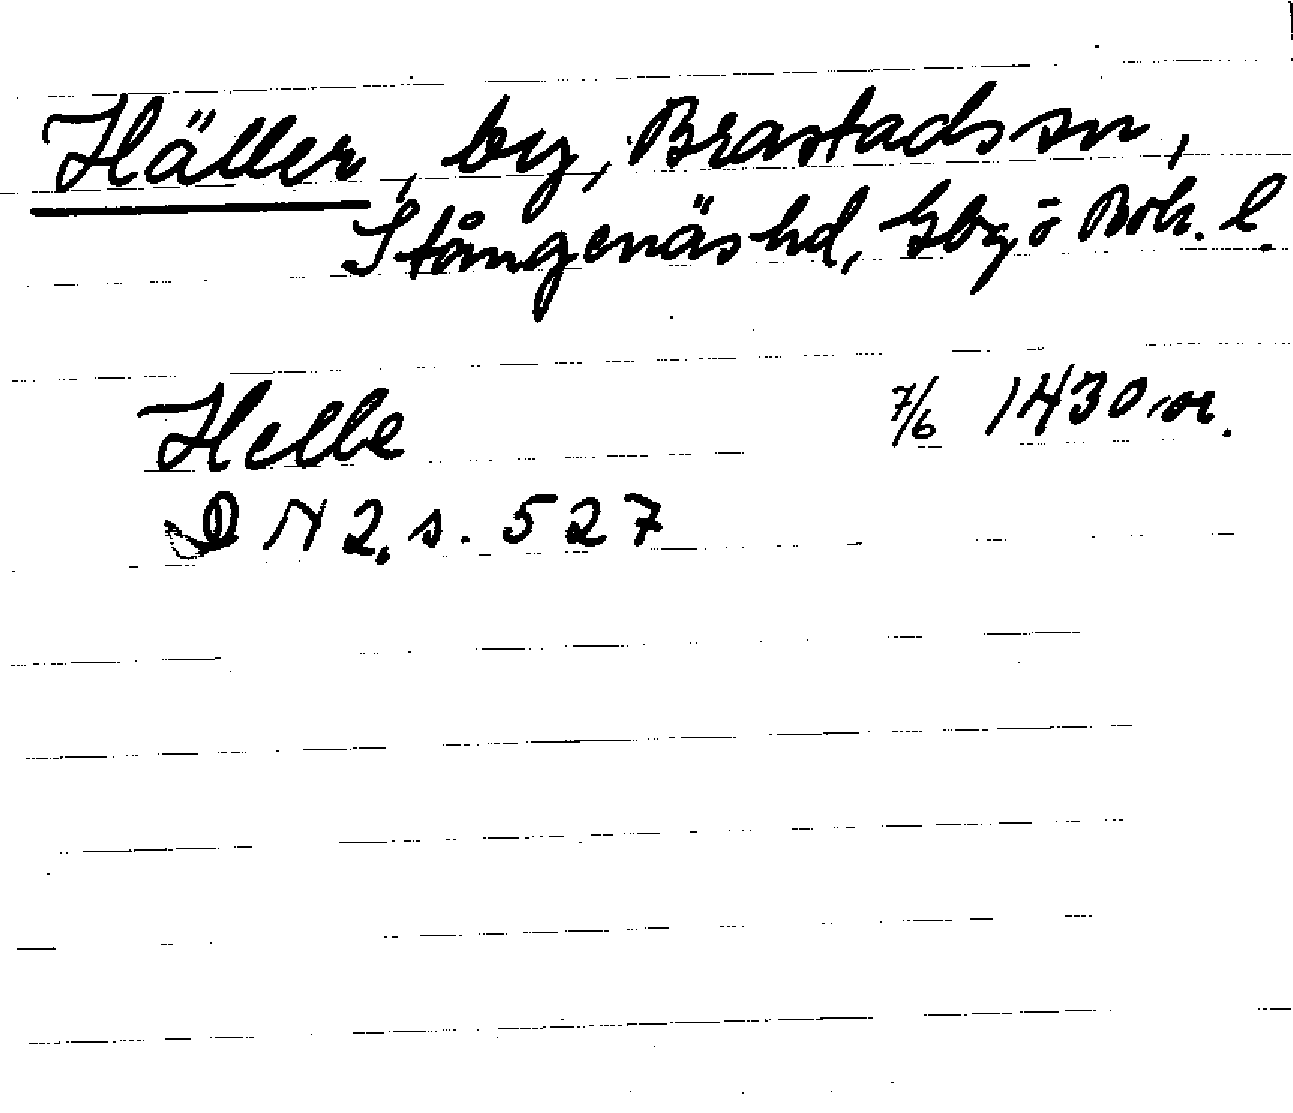 Häller, by, Brastads sn,
Stångenäs hd, Gbg o Boh. l.
Helle 7/6 1430 or.
DN 2, s. 527